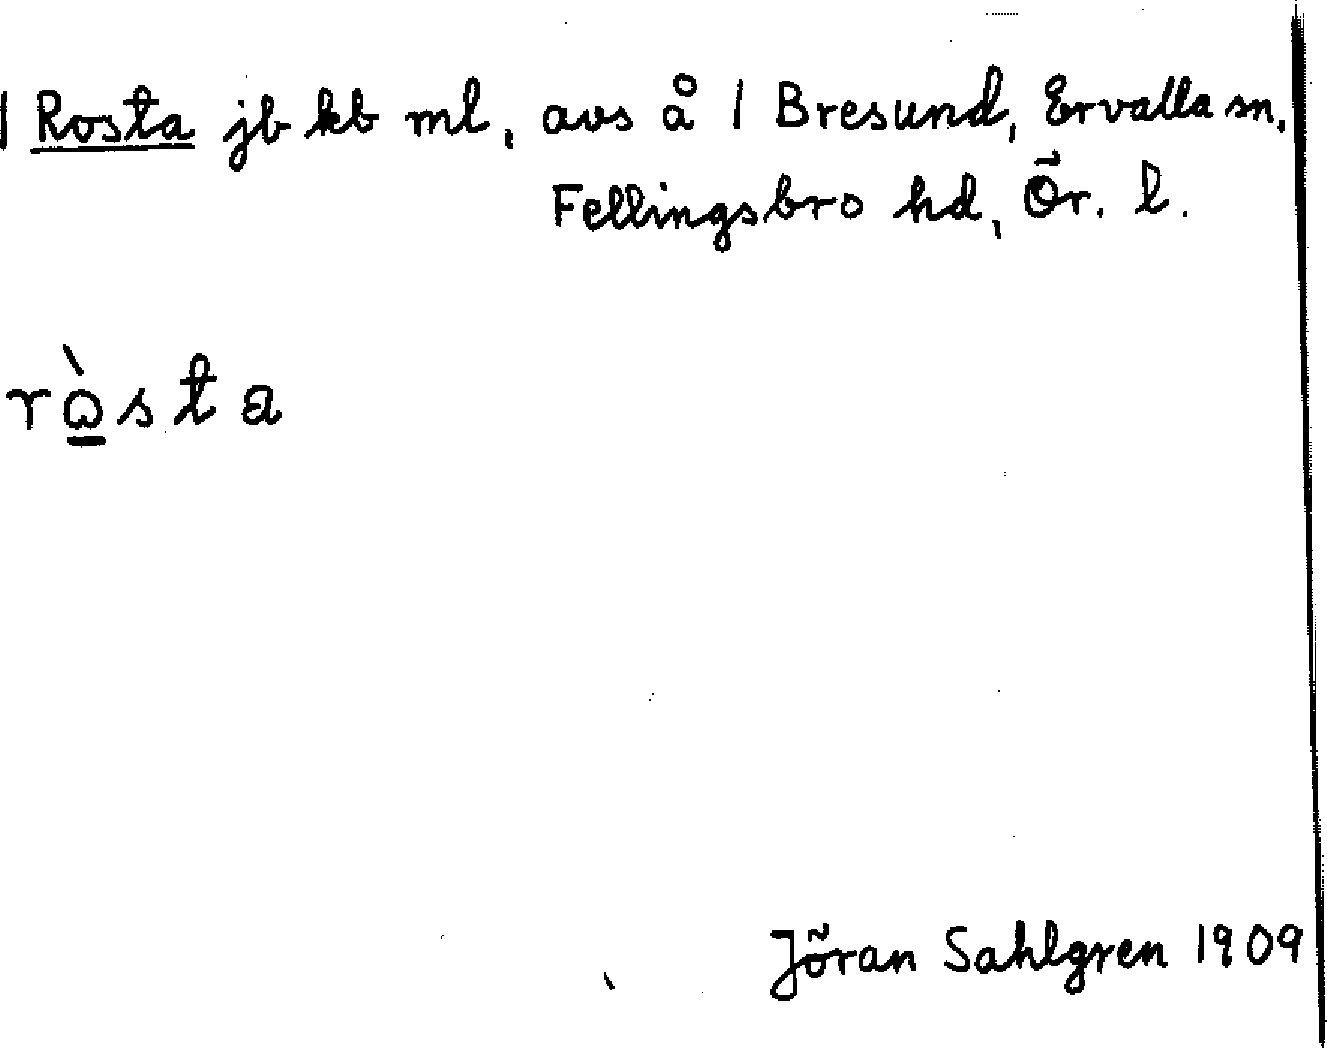 | Rosta jb kb ml, avs å | Bresund, Ervalla sn,
Fellingsbro hd, Ör. l.
rὼ̲sta
Jöran Sahlgren 1909